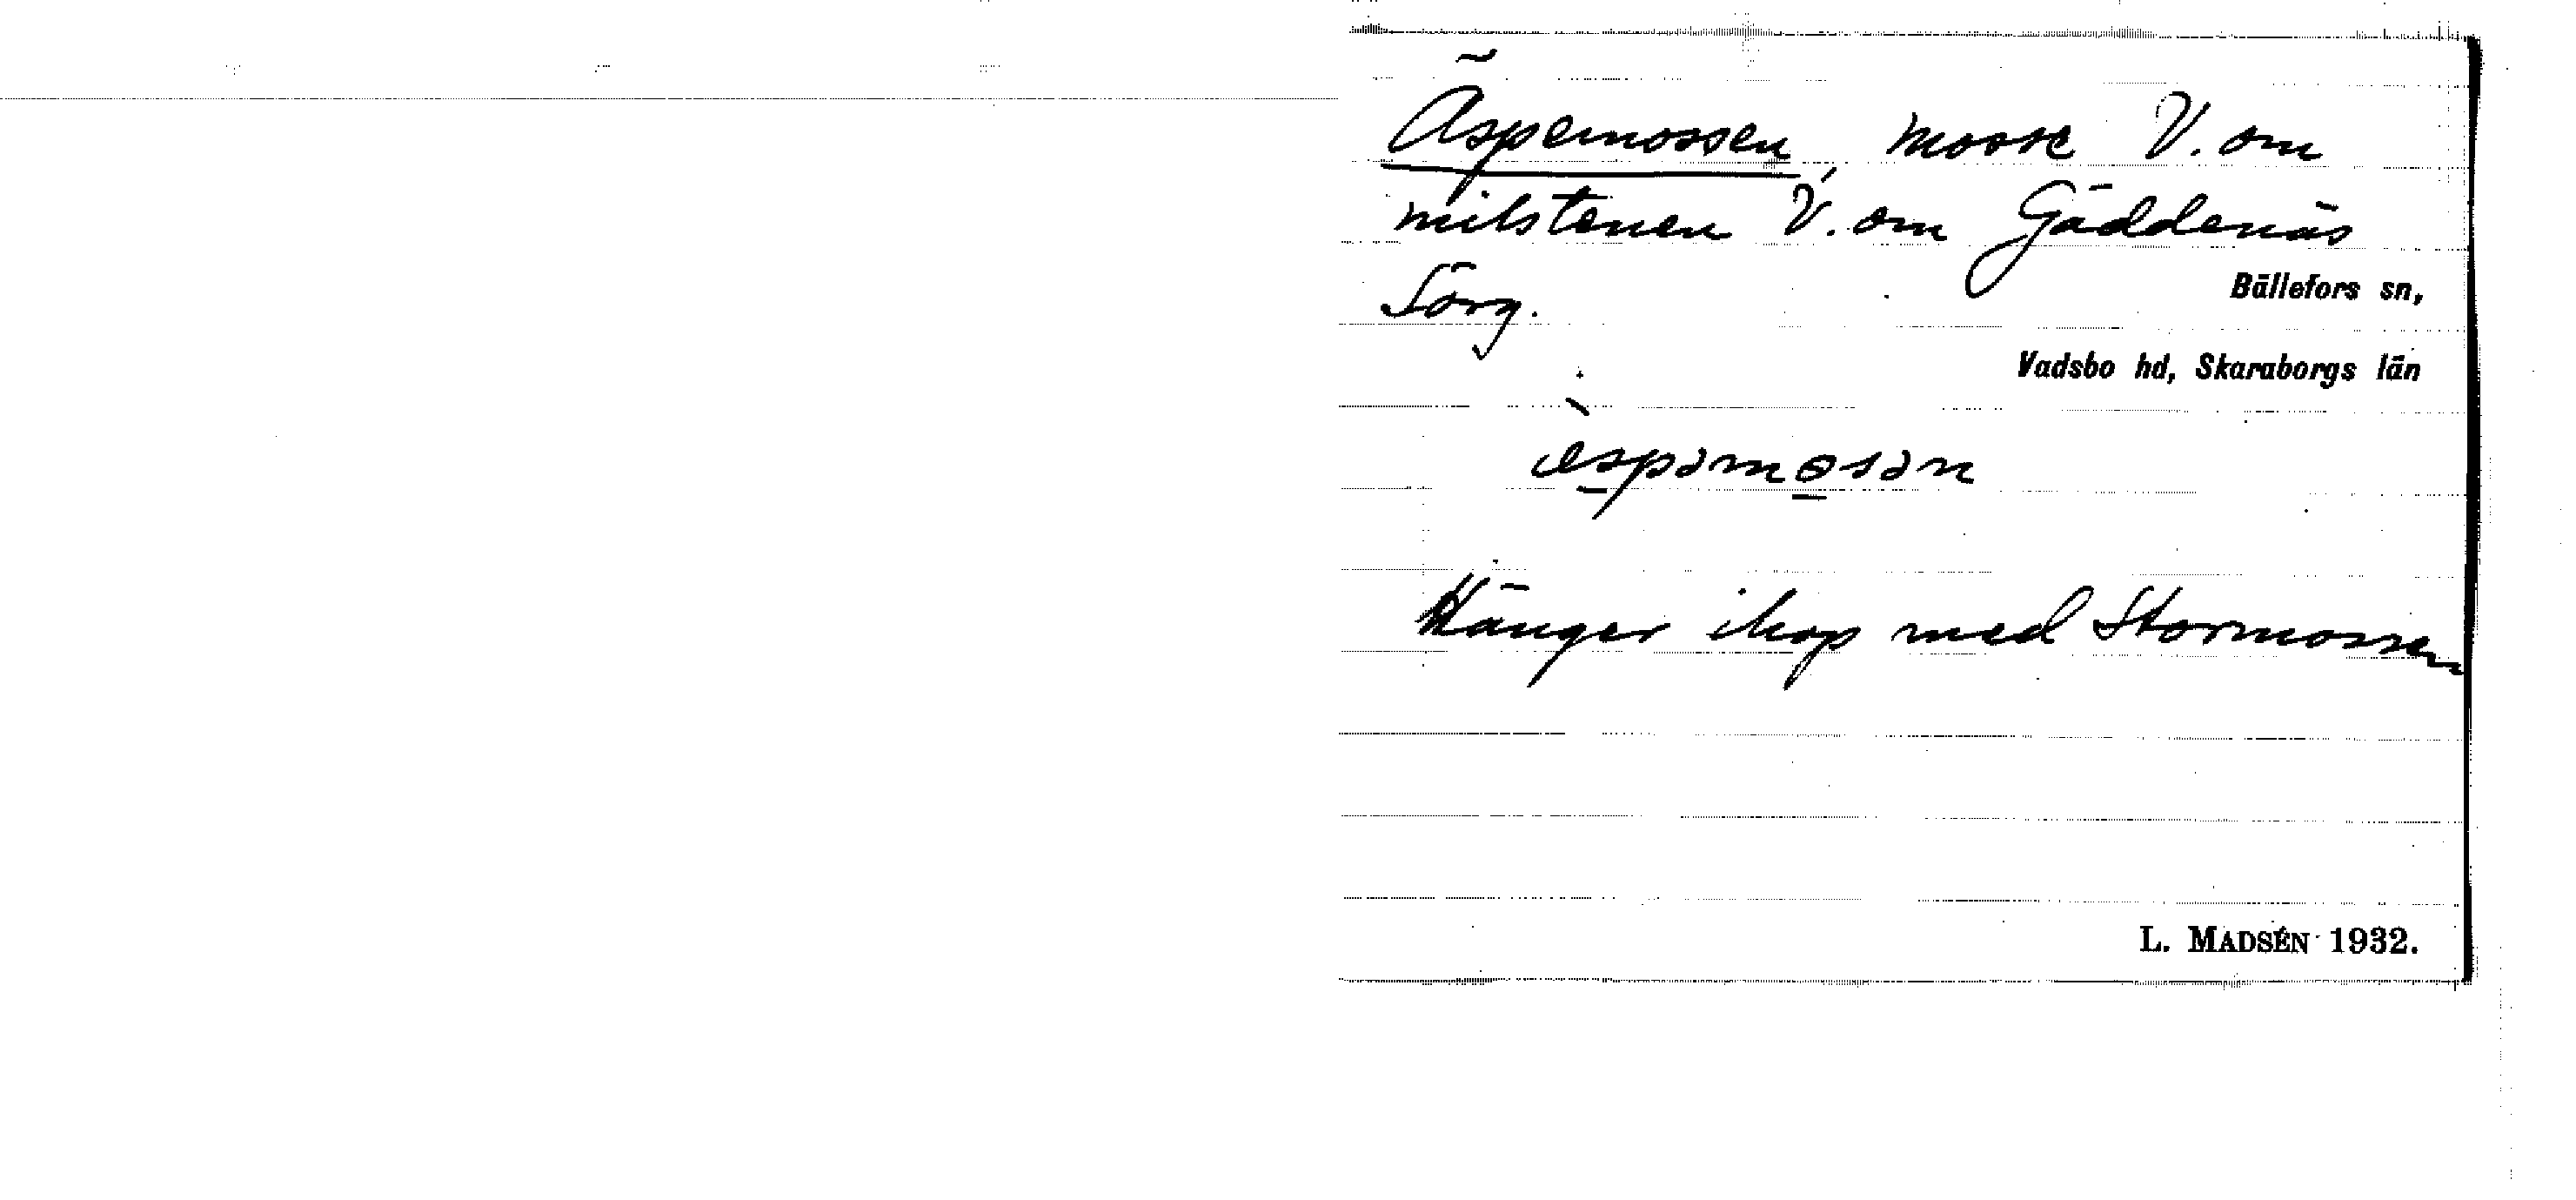 Äspemossen, mosse V. om
milstenen V. om Gäddenäs
Sörg.
Bällefors sn,
Vadsbo hd, Skaraborgs län
æ̀spəmosən
Hänger ihop med Stormossen
L. MADSÉN 1932.